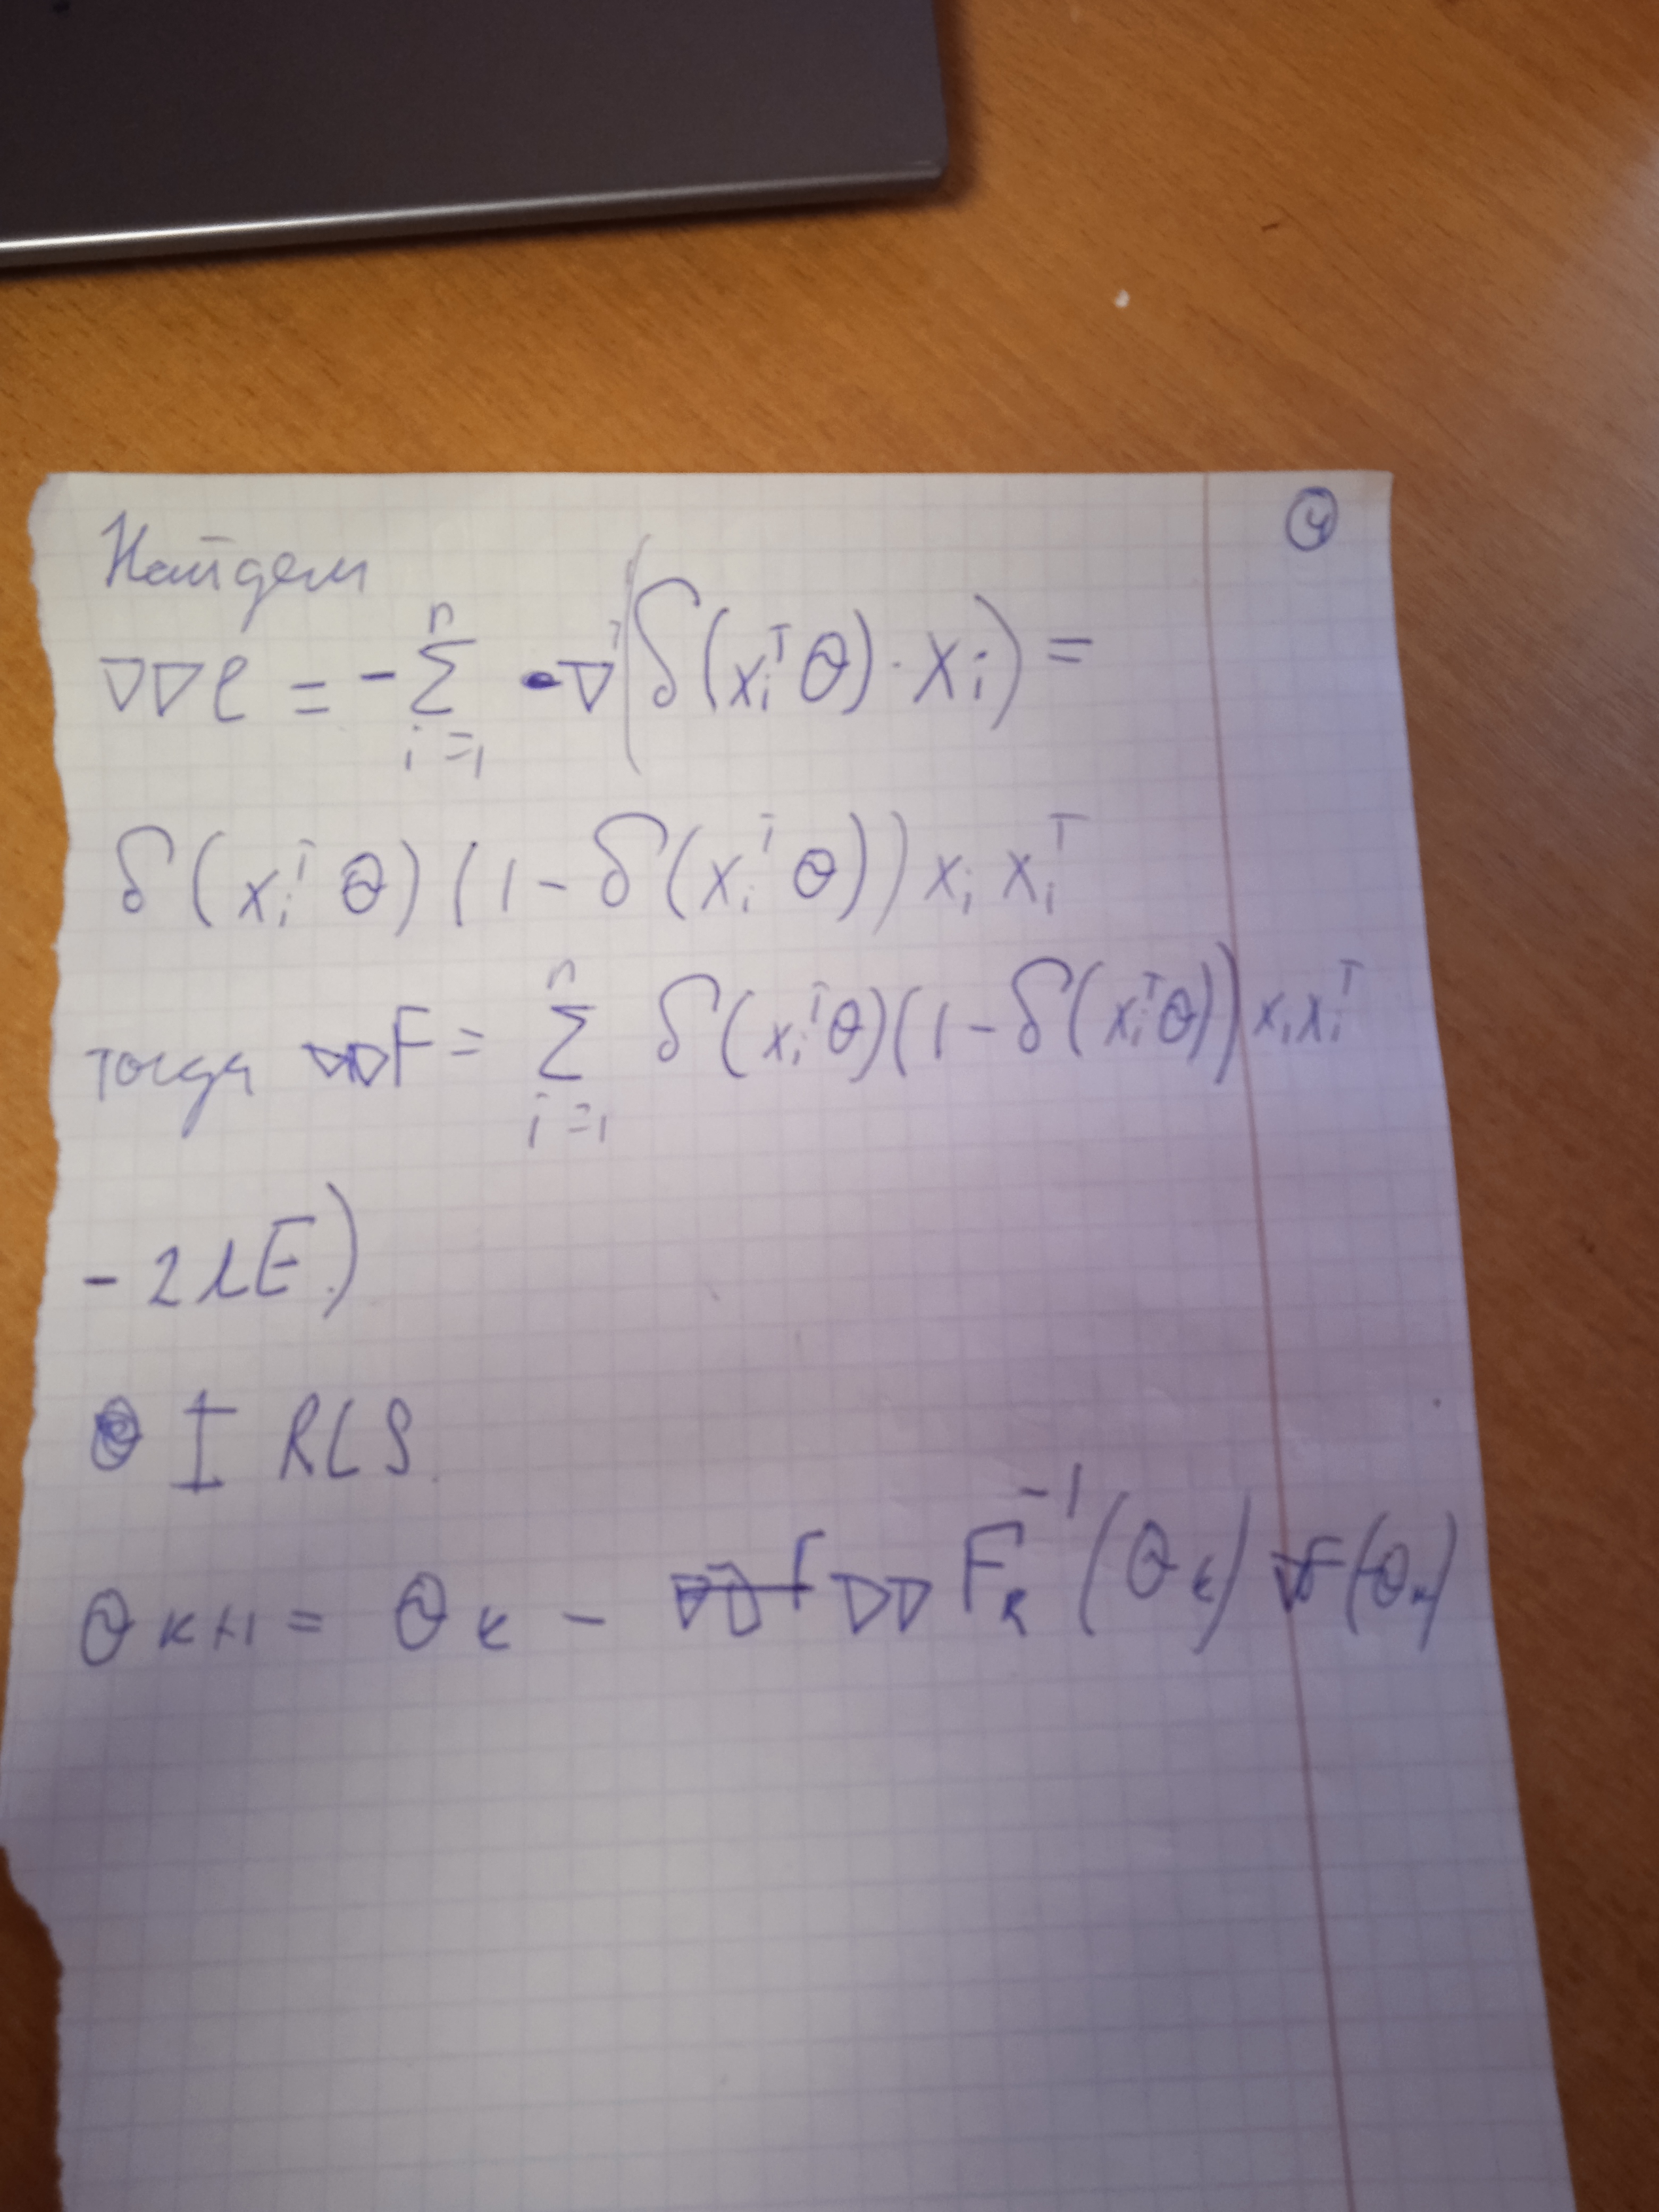 ④
Найдем
∇∇ℓ = - Σ_{i=1}^{n} ∇^T(δ(x_i^T θ) · x_i) =
δ(x_i^T θ)(1 - δ(x_i^T θ)) x_i x_i^T
тогда ∇∇F = Σ_{i=1}^{n} δ(x_i^T θ)(1 - δ(x_i^T θ)) x_i x_i^T
- 2λE)
I RLS.
θ_{k+1} = θ_k - ∇∇ F_k^{-1}(θ_k) ∇F(θ_k)